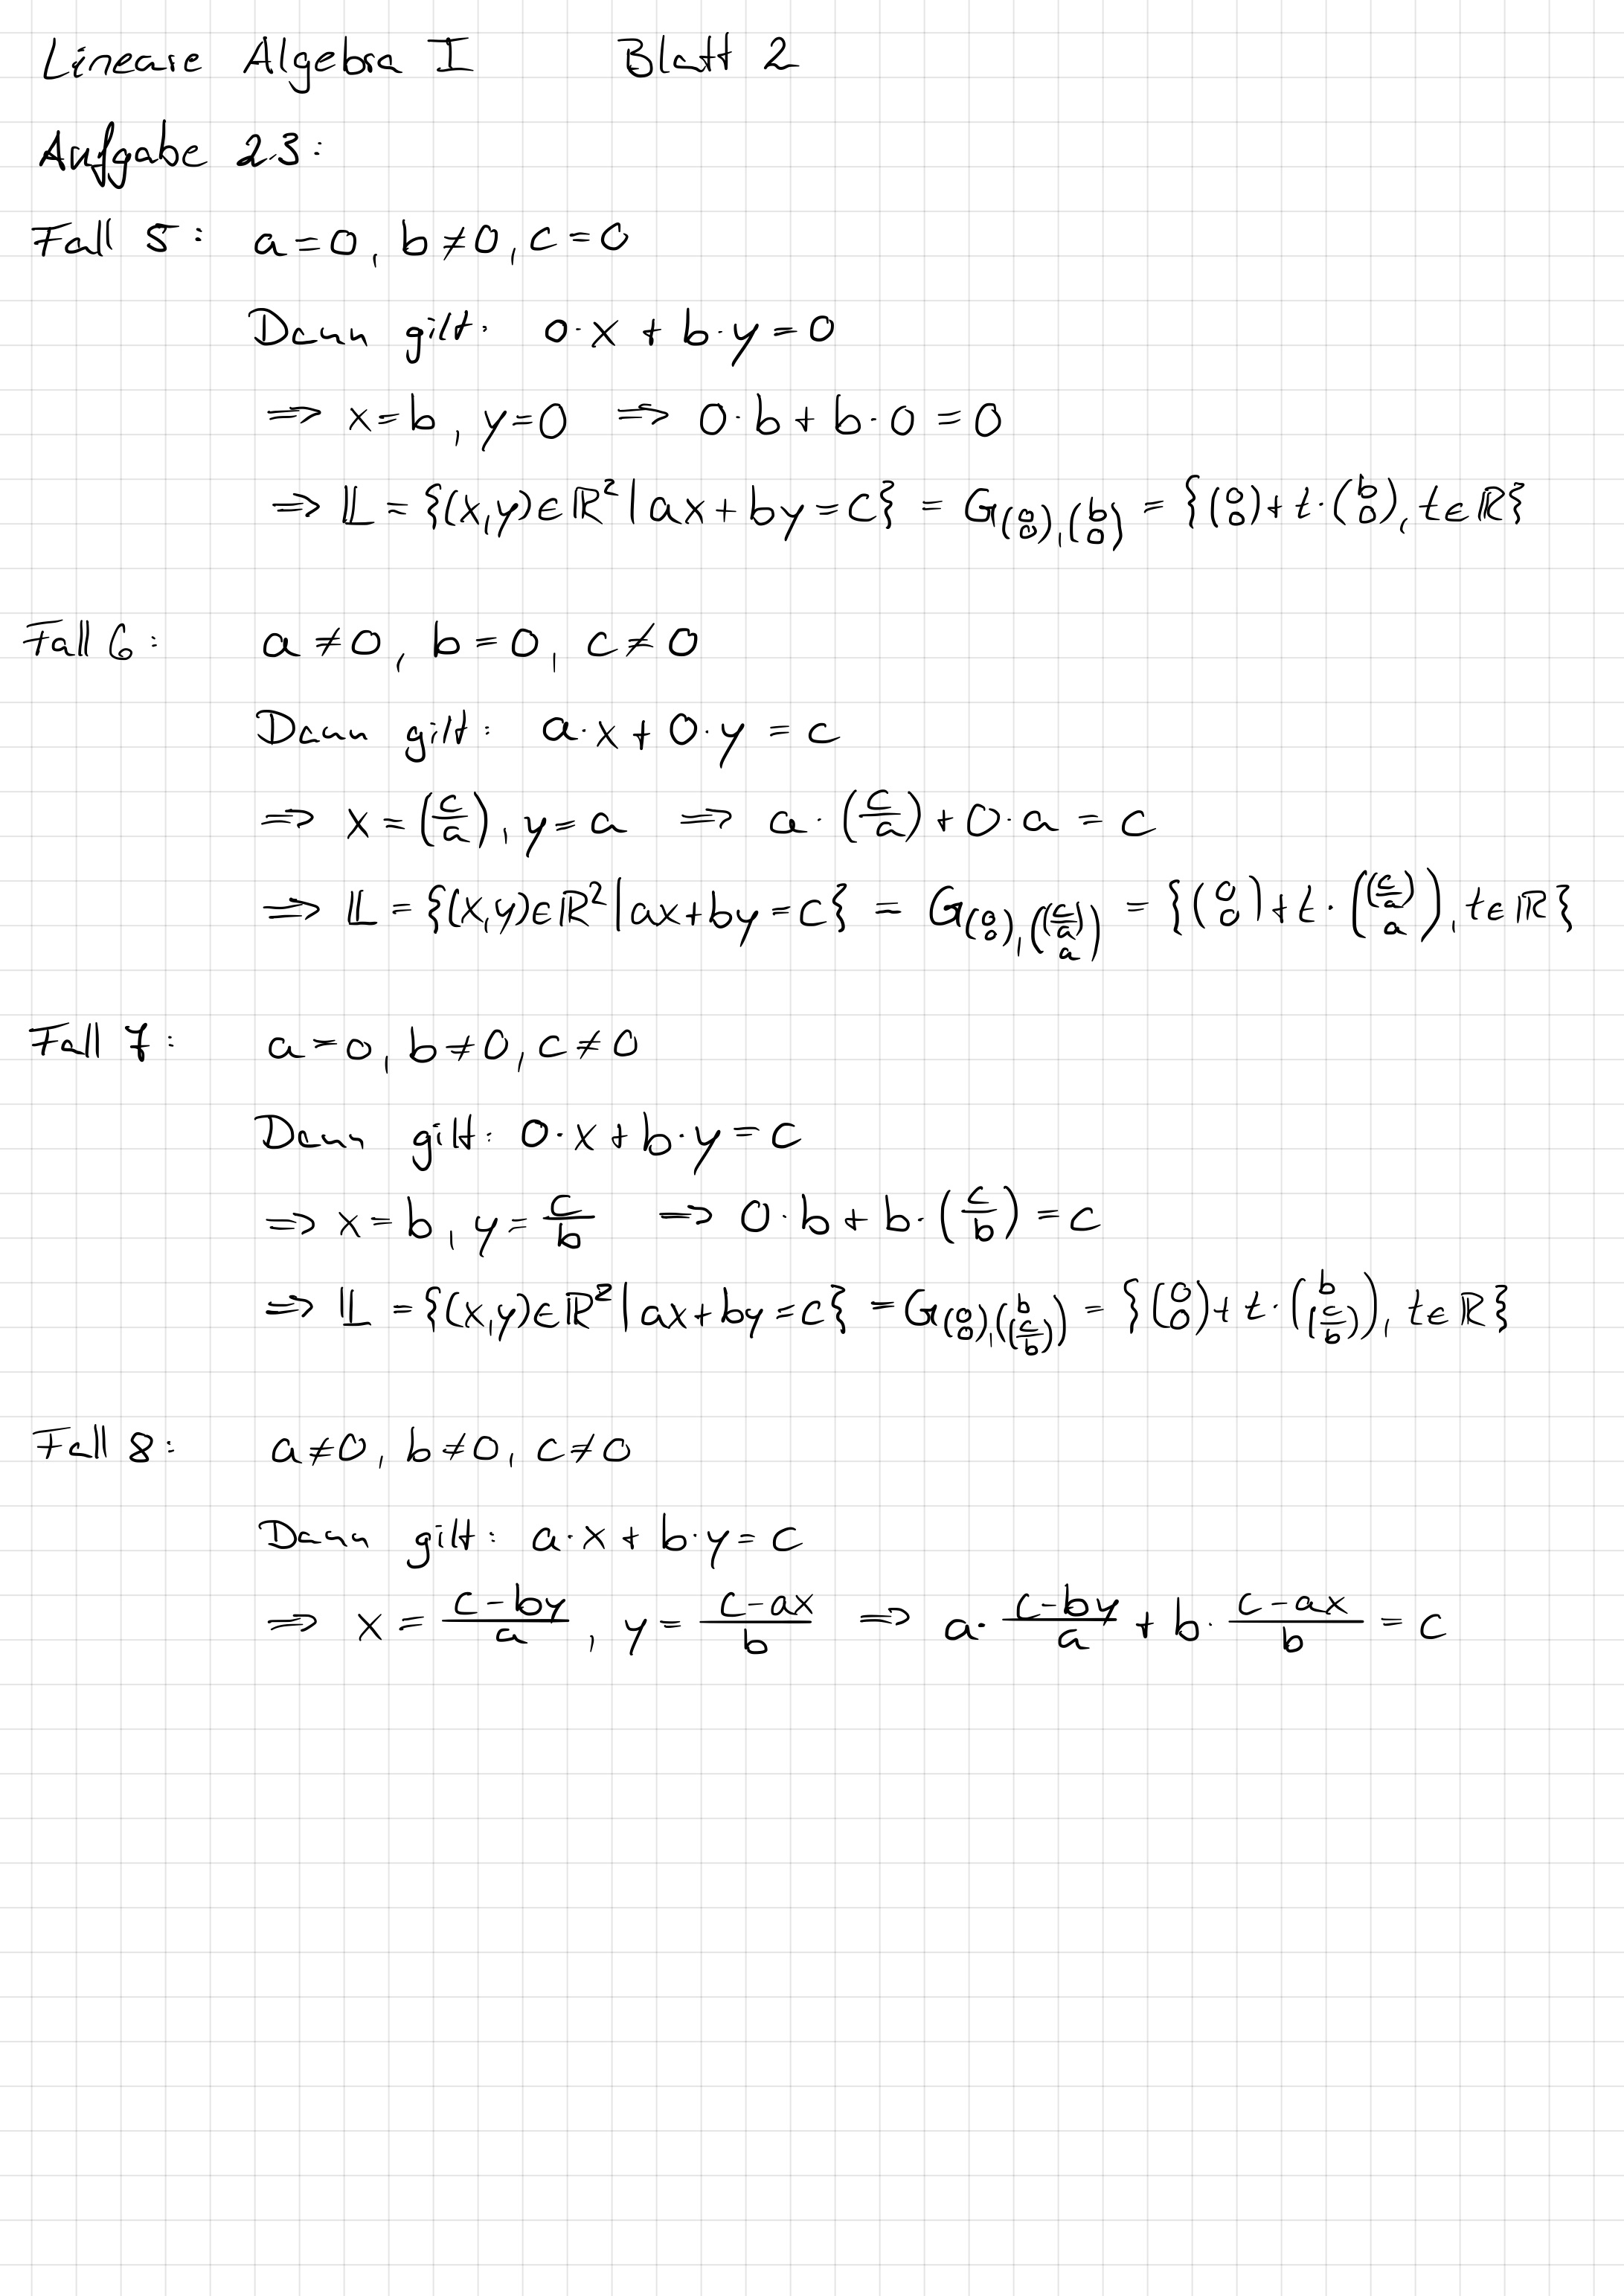 Lineare Algebra I Blatt 2
Aufgabe 2.3:
Fall 5: a=0, b≠0, c=0
Dann gilt: 0·x + b·y = 0
⇒ x=b, y=0 ⇒ 0·b + b·0 = 0
⇒ 𝕃 = {(x,y)∈ℝ² | ax+by=c} = G_{(0 0), (b 0)} = {(0 0) + t·(b 0), t∈ℝ}
Fall 6: a≠0, b=0, c≠0
Dann gilt: a·x + 0·y = c
⇒ x=(c/a), y=a ⇒ a·(c/a) + 0·a = c
⇒ 𝕃 = {(x,y)∈ℝ² | ax+by=c} = G_{(0 0), ((c/a) a)} = {(0 0) + t·((c/a) a), t∈ℝ}
Fall 7: a=0, b≠0, c≠0
Dann gilt: 0·x + b·y = c
⇒ x=b, y=c/b ⇒ 0·b + b·(c/b) = c
⇒ 𝕃 = {(x,y)∈ℝ² | ax+by=c} = G_{(0 0), (b (c/b))} = {(0 0) + t·(b (c/b)), t∈ℝ}
Fall 8: a≠0, b≠0, c≠0
Dann gilt: a·x + b·y = c
⇒ x = (c-by)/a, y = (c-ax)/b ⇒ a·(c-by)/a + b·(c-ax)/b = c